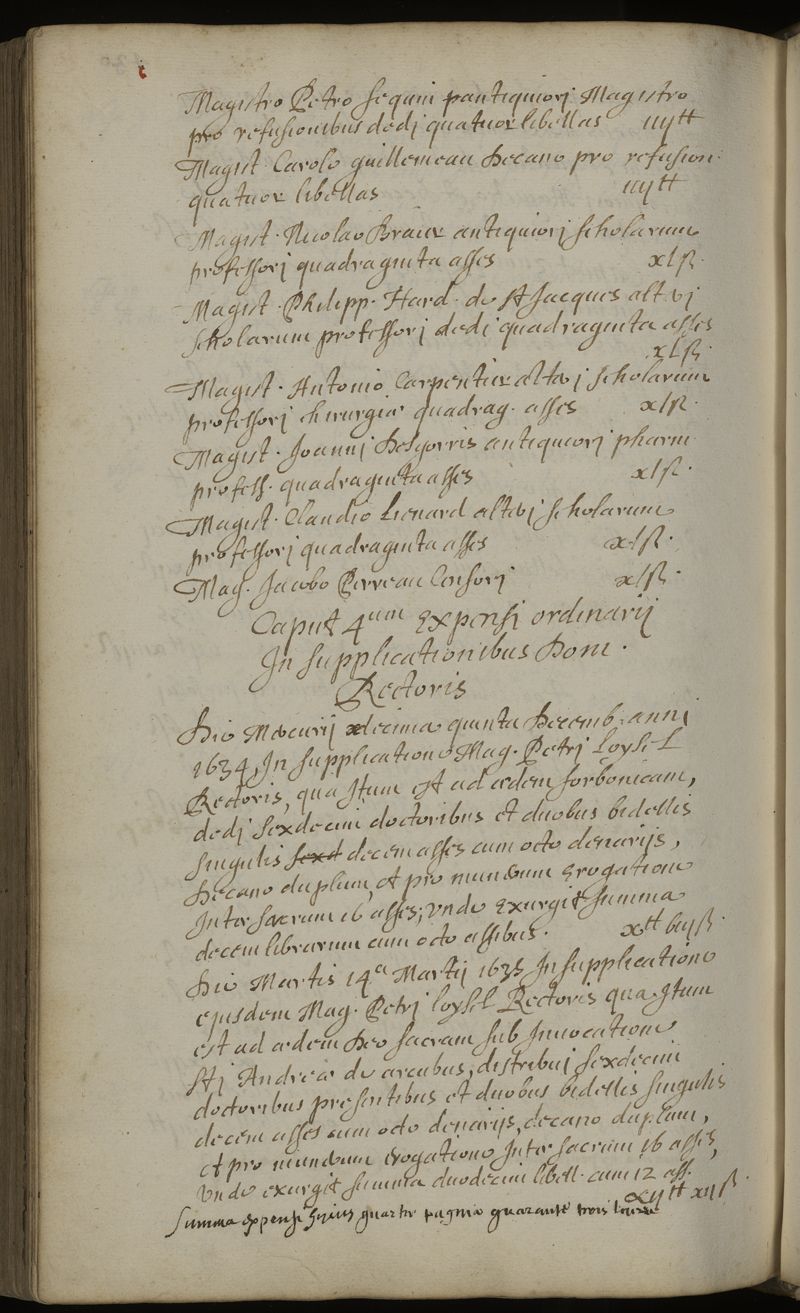 Magistro Petro Seguin antiquiori Magistro
pro refusionibus dedi quatuor libellas iiij tt
Magist. Carolo guillemeau Decano pro refusion.
quatuor libellas iiij tt
Magist. Nicolao Braier antiquiori scholarum
professori quadraginta asses xl ß.
Magist. Philipp. Hard. de St Jacques alteri
scholarum professori dedi quadraginta asses
xl ß.
Magist. Antonio Carpentier alteri scholarum
professori chirurgiæ quadrag. asses xl ß.
Magist. Joanni Desgorris antiquiori pharm
profess. quadraginta asses xl ß.
Magist. Claudio Lienard alteri scholarum
professori quadraginta asses xl ß.
Mag. Jacobo Perreau Censori xl ß.
Caput 4um Expensi ordinarij
In supplicationibus Dom.
Rectoris
Die Mercurij decima quinta Decemb. anni
1634, In supplicatione Mag. Petri Loysel
Rectoris, qua Itum est ad ædem sorbonicam,
dedi sexdecim doctoribus et duobus bidellis
singulis decem asses cum octo denarijs,
Decano duplum, et pro munerum Erogatione
Inter sacrum 16 asses; Vnde Exurgit summa
decem librarum cum octo assibus. x tt viij ß.
Die Martis 14a Martij 1635 In supplicatione
ejusdem Mag. Petri loysel Rectoris qua Itum
est ad ædem Deo sacram sub Invocatione
Sti Andreæ de arcubus, distribui sexdecim
doctoribus presentibus et duobus bidellis singulis
decem asses cum octo denarijs, decano duplum,
et pro munerum erogatione Inter sacrum 16 asses,
Vnde exurgit summa duodecim libell. cum 12 ass.
xij tt xij ß.
Summa expensi hujus quartæ paginæ quarante trois livres